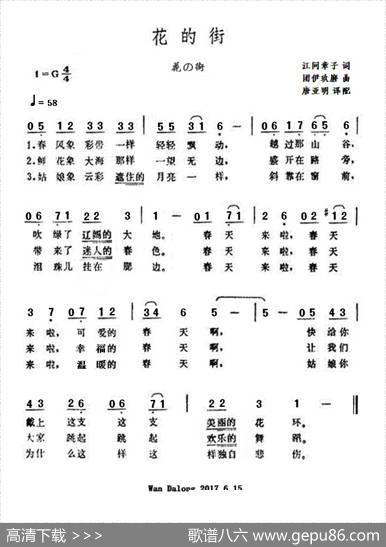 花的街
花の街
1=G 4/4
江间章子 词
团伊玖磨 曲
唐亚明 译配
♩=58
05 12 33 45 | 55 31 6 - | 65 65 6 -
1.春风象彩带一样 轻轻飘动, 越过那山谷,
2.鲜花象大海那样 一望无边, 盛开在路旁,
3.姑娘象云彩遮住的 月亮一样, 斜靠在窗前,
06 71 22 3 | 2 - 01 71 | 2 6 02 #12
吹绿了辽阔的大地。 春天来啦,春天
带来了迷人的春色。 春天来啦,春天
泪珠儿挂在腮边。 春天来啦,春天
3 7 07 12 | 33 34 5 - | 5 - 05 43
来啦,可爱的春天啊, 快给你
来啦,幸福的春天啊, 让我们
来啦,温暖的春天啊, 姑娘你
43 26 06 71 | 22 3 1 -
戴上这支这支美丽的花环。
大家跳起跳起欢乐的舞蹈。
为什么这样这样独自悲伤。
Wan Dalong 2017.6.15
高清下载 >>>
歌谱八六 www.gepu86.com